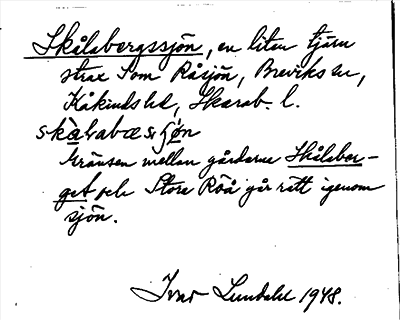 Skålabergssjön, en liten tjärn
strax S om Råsjön, Breviks sn,
Kåkinds hd, Skarab. l.
skàlabæsjön
Gränsen mellan gårdarna Skålaber-
get och Stora Röå går rätt igenom
sjön.
Ivar Lundahl 1948.